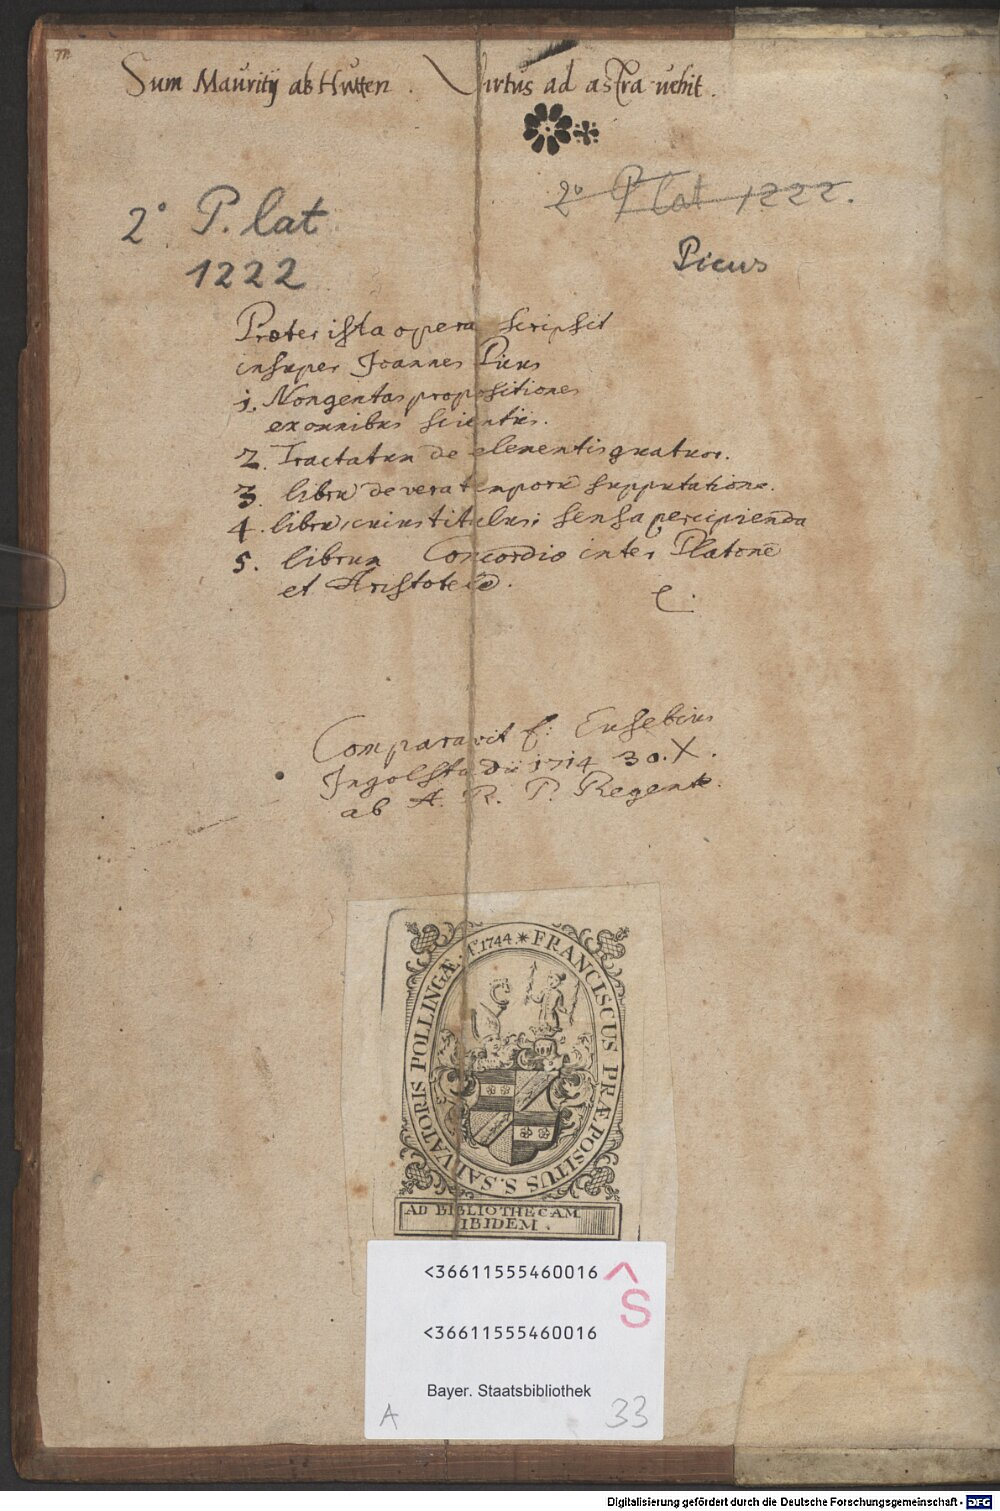 Sum Mauritij ab Hutten. Virtus ad astra vehit.
2° P. lat 1222.
2° P. lat
1222
Picus
Præter ista opera scripsit
insuper Joannes Picus
1. Nongentas propositiones
ex omnibus scientiis.
2. Tractatum de elementis quatuor.
3. librū de vera temporū supputatione.
4. librū, cuius titulus: sensa percipienda
5. librum Concordiæ inter Platonē
et Aristotelē.
Comparavit f: Eusebius
Ingolstadii 1714 30. X.
ab A. R. P. Regente.
FRANCISCUS PRÆPOSITUS S. SALVATORIS POLLINGÆ. Aº 1744.
AD BIBLIOTHECAM
IBIDEM.
<36611555460016
S
<36611555460016
Bayer. Staatsbibliothek
A 33
Digitalisierung gefördert durch die Deutsche Forschungsgemeinschaft - DFG